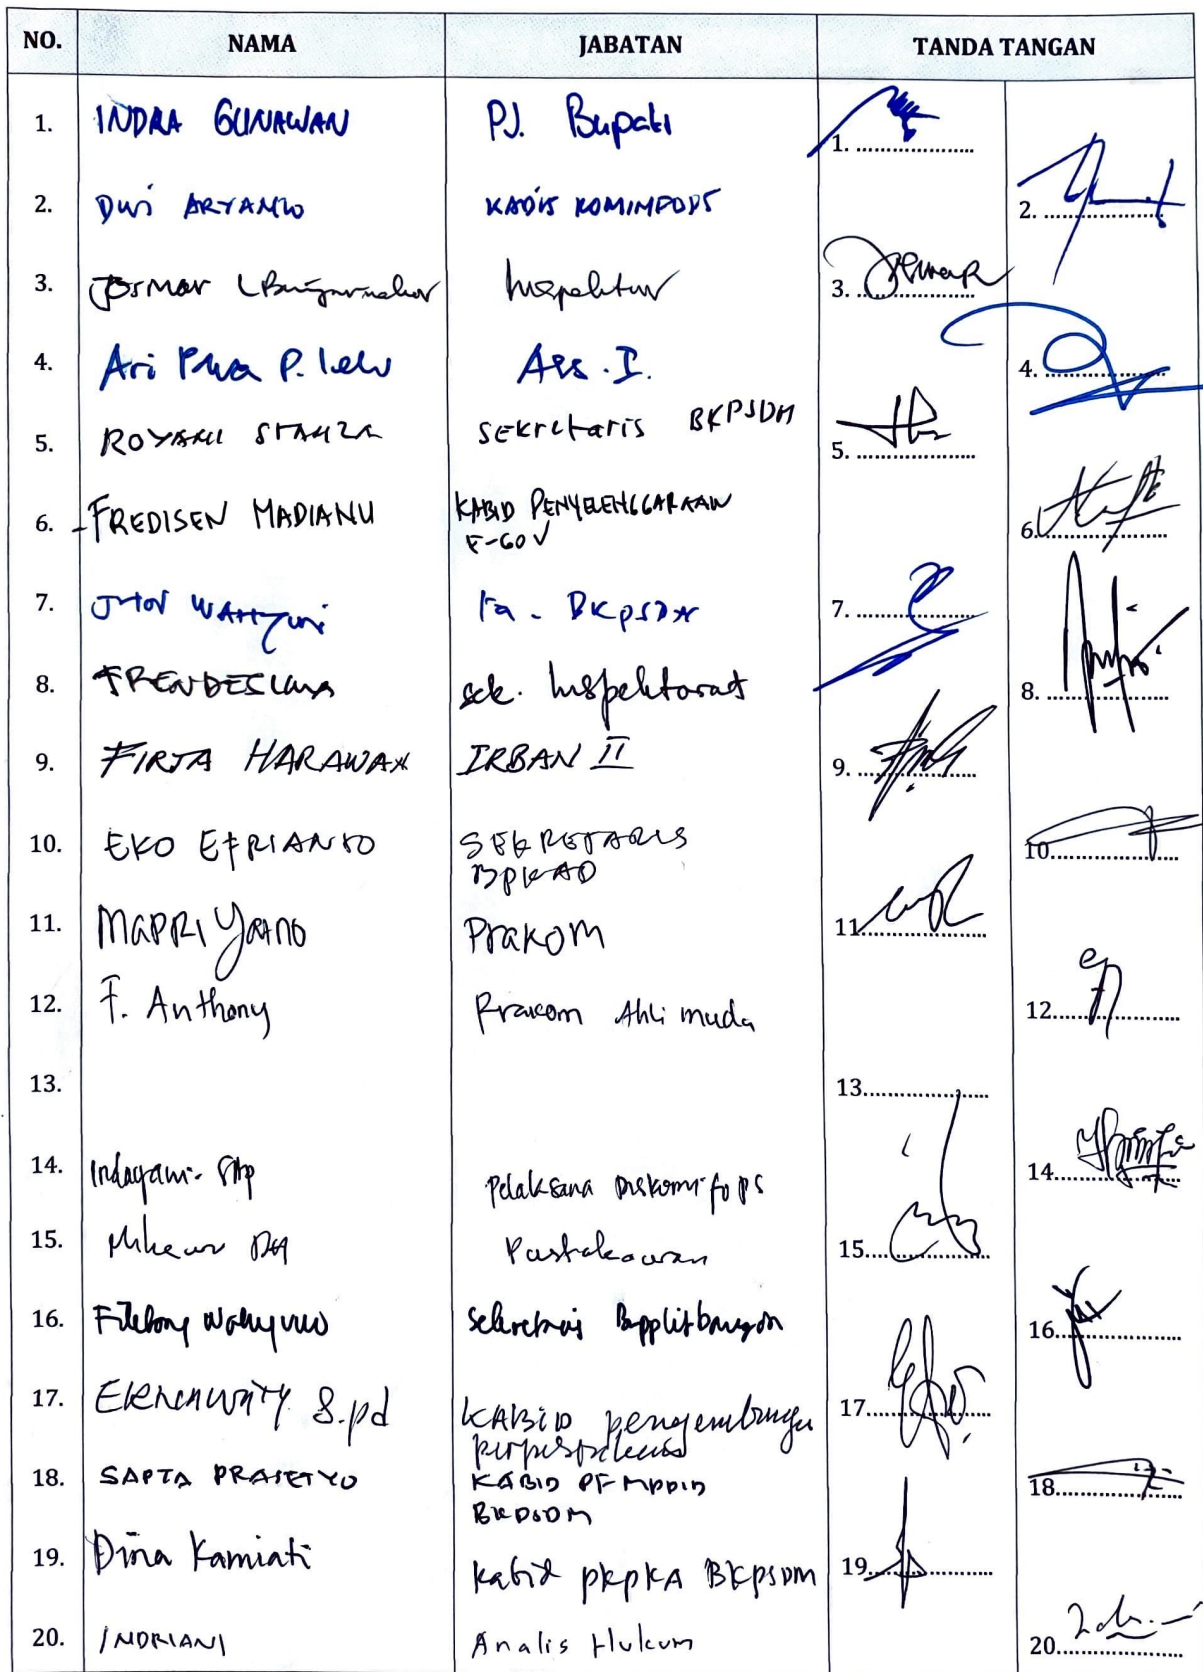 NO. NAMA JABATAN TANDA TANGAN
1. INDRA GUNAWAN PJ. Bupati 1.
2. Dwi ARYANTO KADIS KOMINFOPS 2.
3. Josmar L Inspektur 3.
4. Ari P. Ass. I. 4.
5. ROYANI Sekretaris BKPSDM 5.
6. FREDISEN MADIANU KABID PENYELENGGARAAN 6.
E-GOV
7. WAHYUNI Ka. BKPSDM 7.
8. sek. Inspektorat 8.
9. FIRTA HARAWAN IRBAN II 9.
10. EKO EFRIANTO SEKRETARIS 10
BPKAD
11. MAPRI YANTO Prakom 11
12. F. Anthony Prakom Ahli muda 12
13. 13
14. Indayani. Pelaksana Diskomifops 14
15. Pustakawan 15
16. Wahyuno Sekretaris Bapplitbangda 16
17. S.pd KABID pengembangan 17
perpustakaan
18. SAPTA PRASETYO KABID 18
BKPSDM
19. Dina Kamiati kabid pkpKA BKpsDM 19
20. INDRIANI Analis Hukum 20